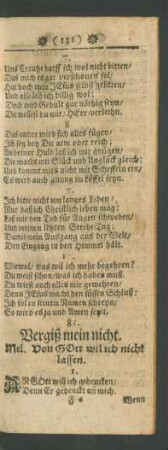 (131)
7.
Ums Creutze darff ich wol nicht bitten/
Daß mich es gar verschonen sol/
Hat doch mein JEsus selbst gelitten/
Und also leid ich billig wol:
Doch wird Gedult gar nöthig seyn/
Die wollest du mir/ HErr/ verleyhn.
8.
Das andre wird sich alles fügen/
Ich sey bey Dir arm oder reich;
An deiner Huld laß ich mir gnügen/
Die macht mir Glück und Unglück gleich:
Und kommt mirs nicht mit Scheffeln ein/
Es wird auch gnung in Löffel seyn.
9.
Ich bitte nicht um langes Leben/
Nur daß ich Christlich leben mag;
Laß mir den Tod für Augen schweben/
Und meinen letzten Sterbe-Tag;
Damit mein Außgang aus der Welt/
Den Eingang in den Himmel hält.
Wiewol/ was wil ich mehr begehren?
Du weist schon/ was ich haben muß.
Du wirst auch alles mir gewehren/
Denn JEsus macht den süssen Schluß:
Ich sol in seinem Namen schreyn/
So wird es ja und Amen seyn.
Vergiß mein nicht.
Mel. Von GOtt wil ich nicht
lassen.
1.
AN GOtt will ich gedencken/
Denn Er gedenckt an mich.
Wenn